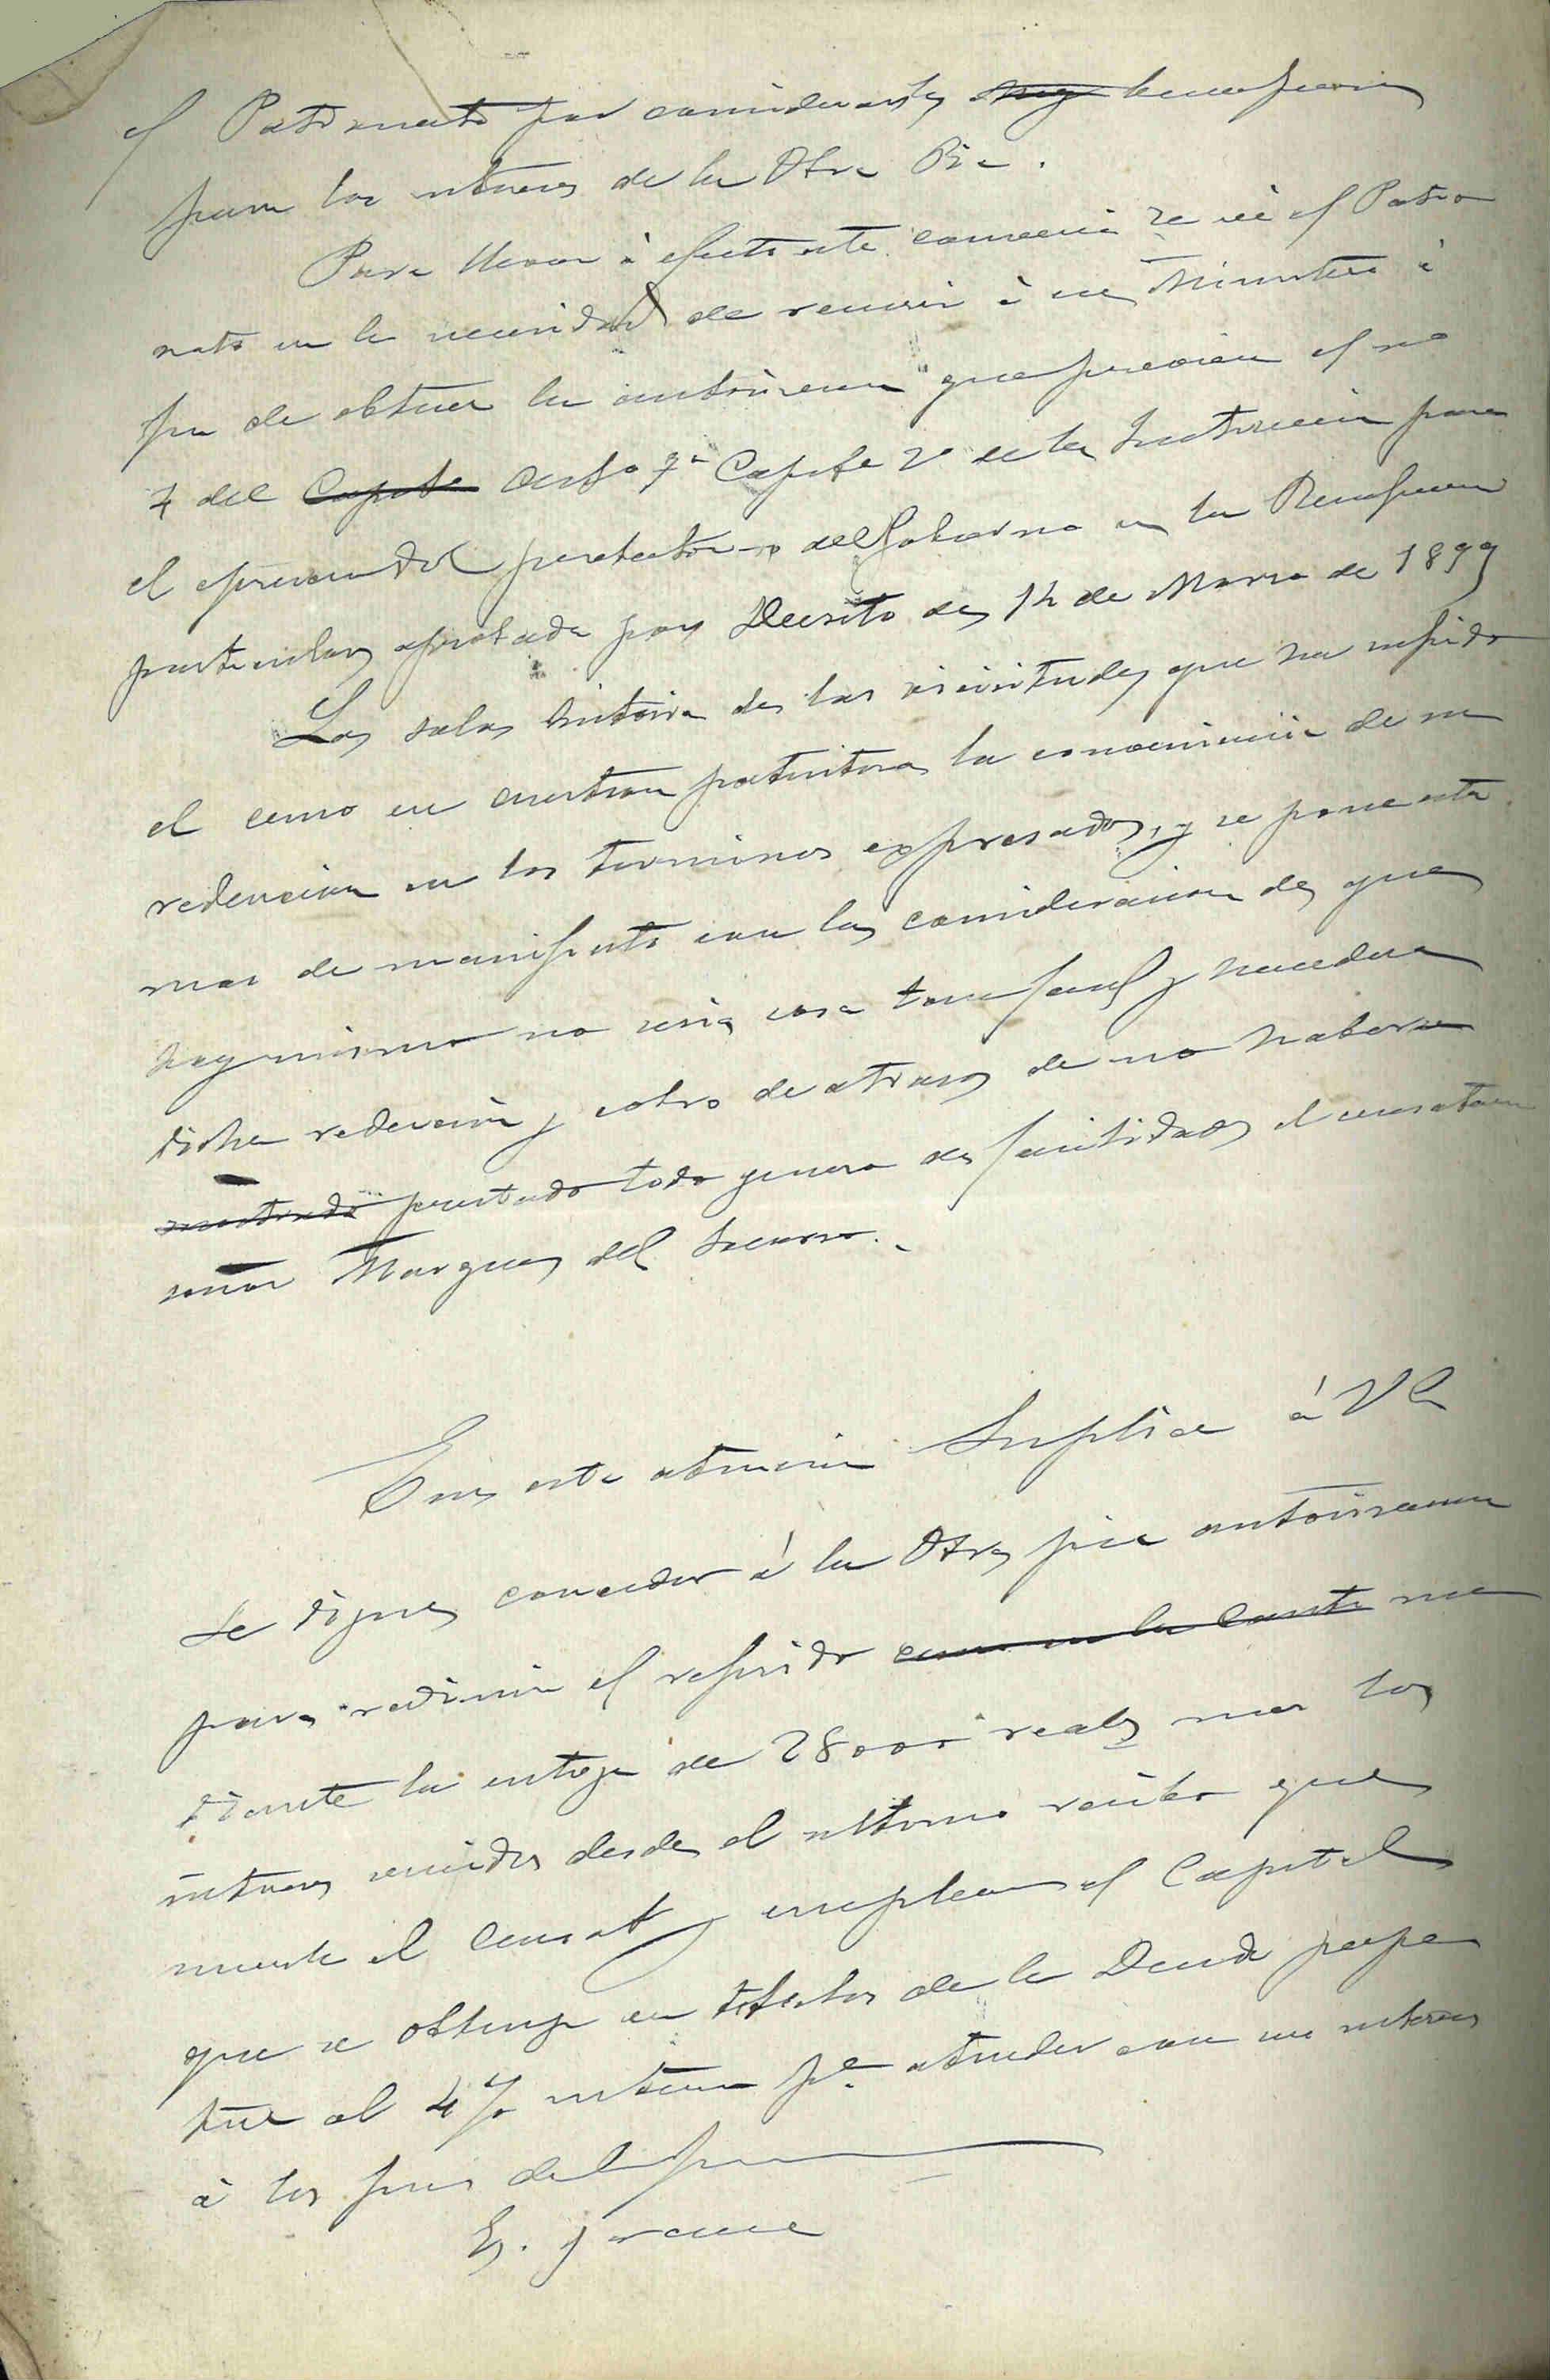 el Patronato por considerarla muy beneficiosa
para los intereses de la Obra Pia.
Para llevar à efecto esta se vé el Patro
nato en la necesidad de recurrir à ese Ministerio à
fin de obtener la autorizacion que previene el nº
4 del Capite Artº 7º Capite 2º de la Instruccion para
el ejercicio del protectorado del Gobierno en la Beneficencia
particular, aprobada por Decreto de 14 de Marzo de 1899
La sola historia de las vicisitudes que ha sufrido
el censo en cuestion patentiza la conveniencia de su
redencion en los terminos expresados, y se pone esta
mas de manifiesto con la consideracion de que
hoy mismo no seria cosa tan facil y hacedera
dicha redencion y cobro de atrasos de no haber
mostrado prestado todo genero de facilidades el censatario
señor Marques del Socorro.
En esta atencion Suplica à VE
se digne conceder à la Obra pia autorizacion
para redimir el referido censo me
diante la entrega de 28000 reales mas los
intereses vencidos desde el ultimo recibo que
muestre el censat y emplear el Capital
que se obtenga en titulos de la Deuda perpe
tua al 4% interior pª atender con sus intereses
à los fines de la
Es gracia